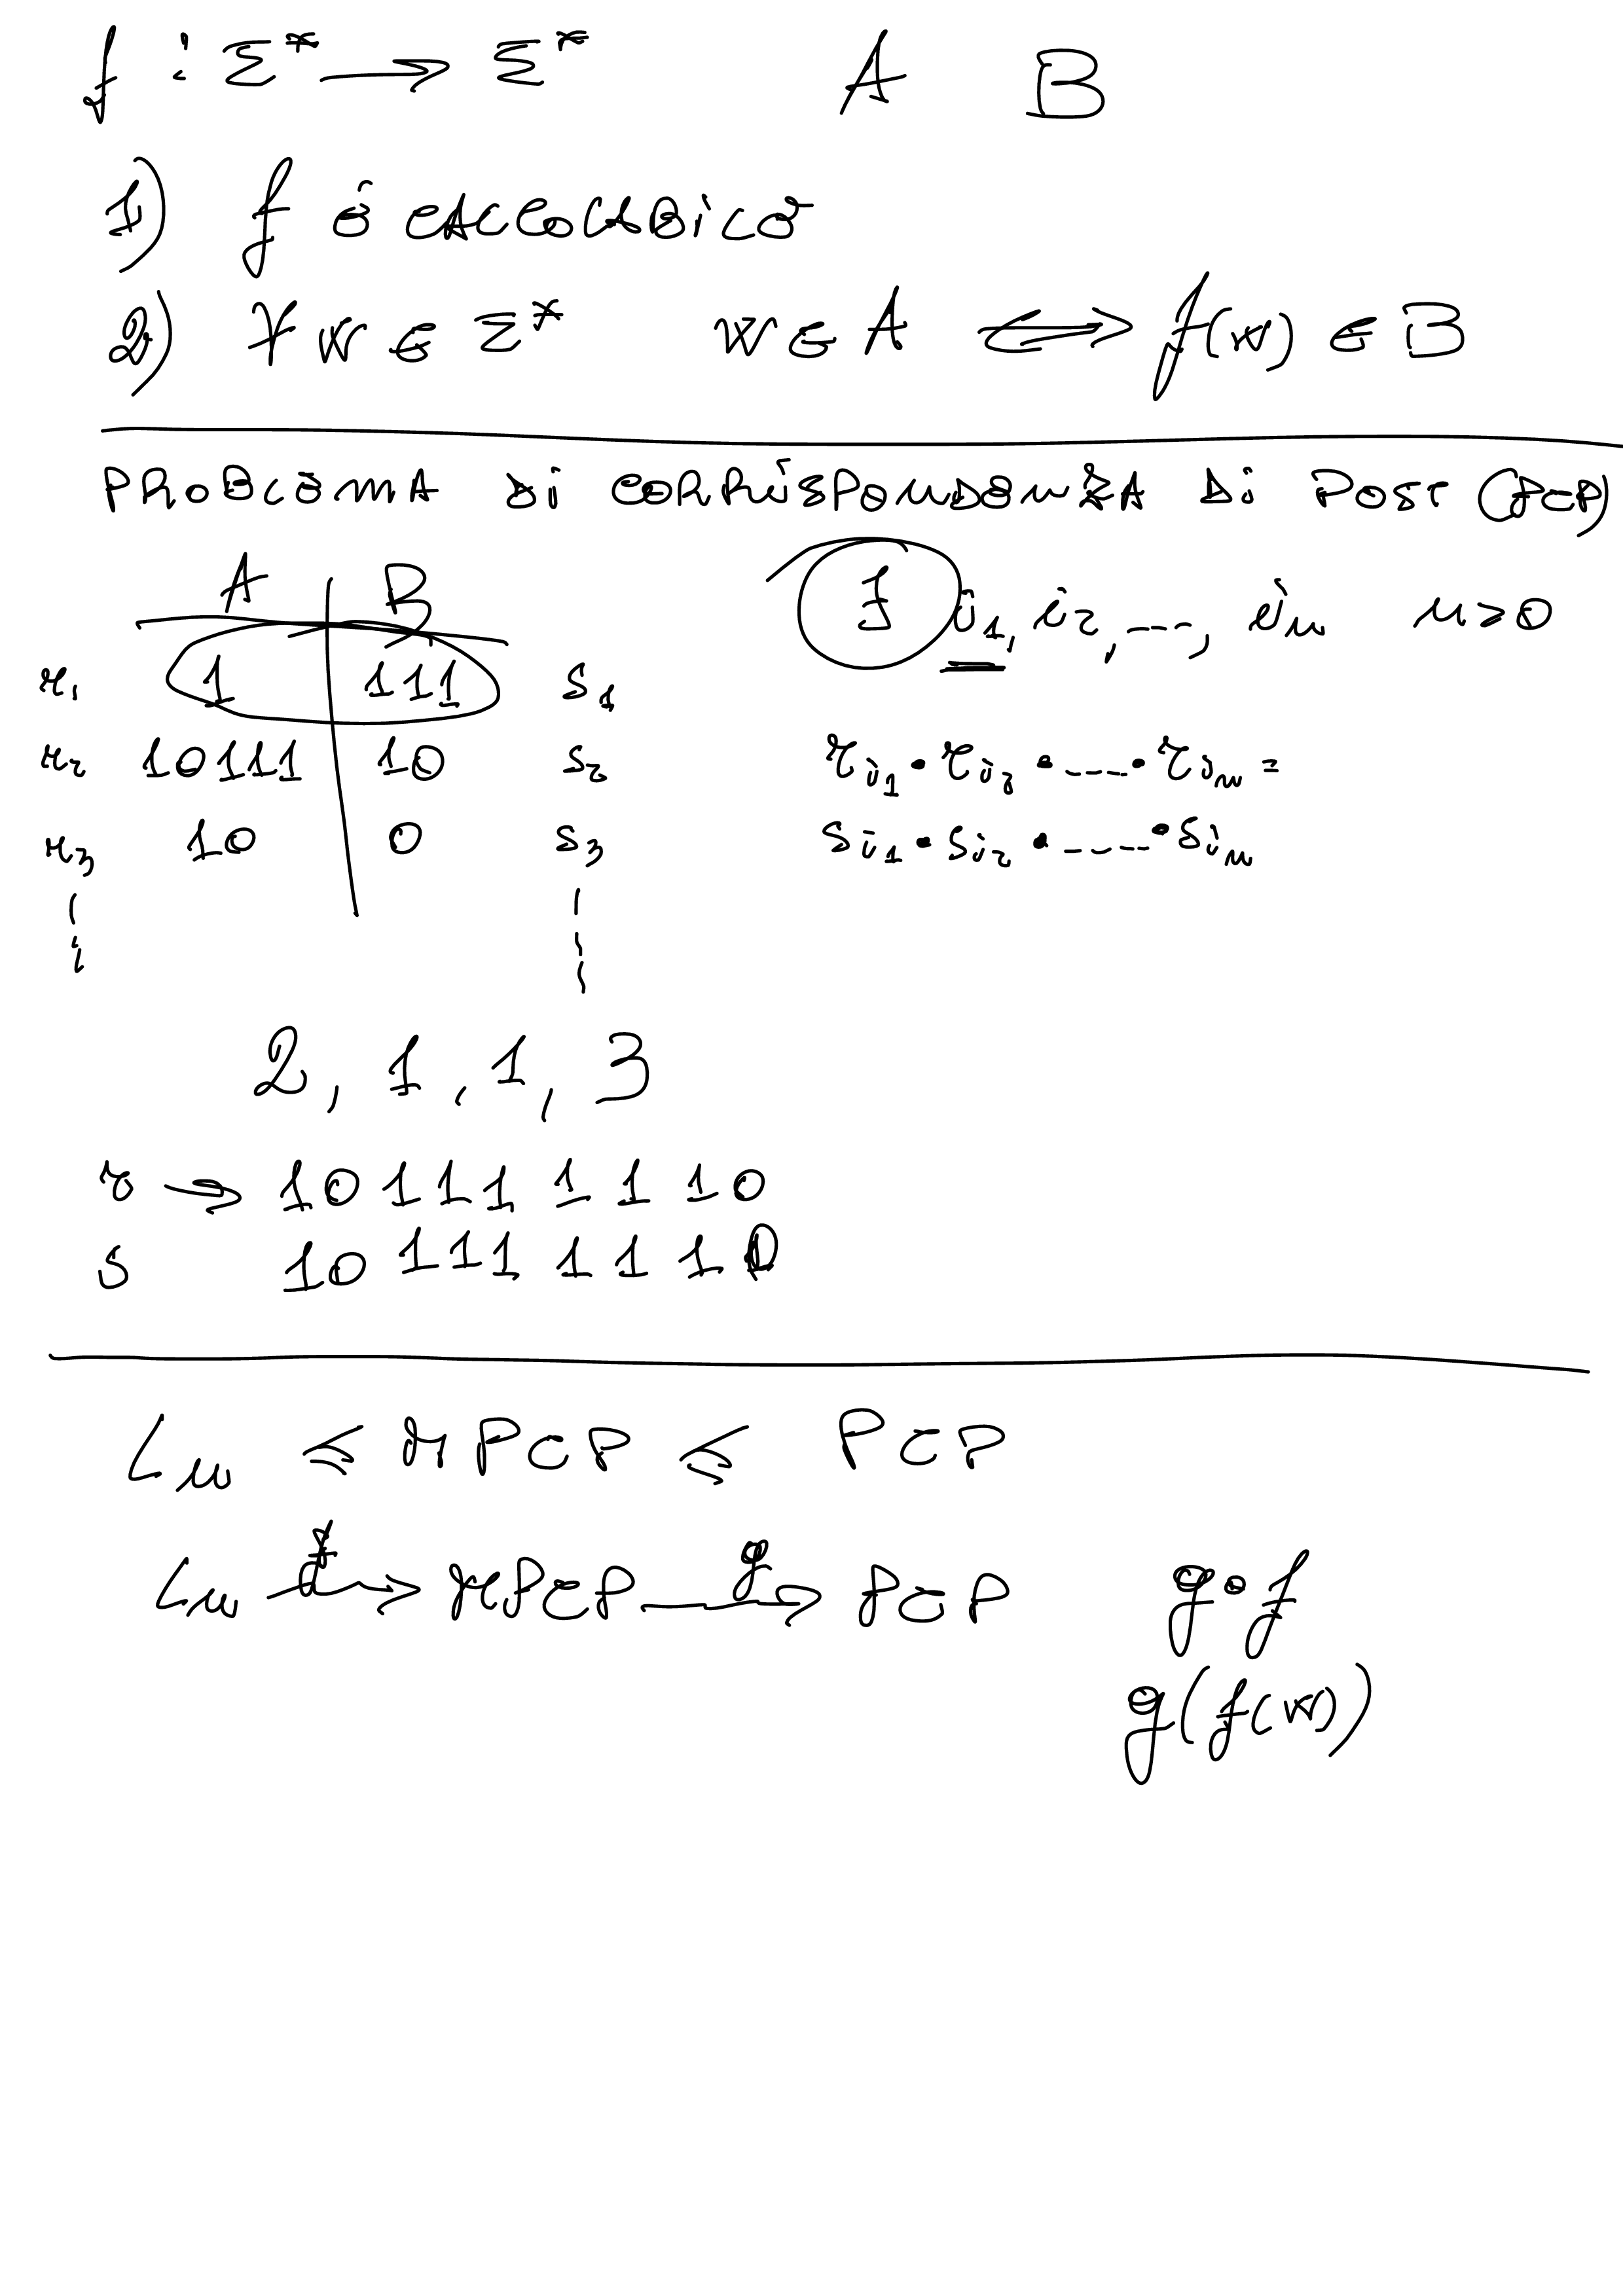 f : Σ* → Σ* A B
1) f è calcolabile
2) ∀ w ∈ Σ* w ∈ A ⟺ f(w) ∈ B
PROBLEMA di CORRISPONDENZA di POST (PCP)
A B
r₁ 1 111 s₁
r₂ 10111 10 s₂
r₃ 10 0 s₃
∃ i₁, i₂, ---, iₙ n>0
r_i₁ · r_i₂ · ---- · r_iₙ =
s_i₁ · s_i₂ · ---- · s_iₙ
2, 1, 1, 3
r → 10 111 1 1 10
s 10 111 11 1 0
Lᵤ ≤ MPCP ≤ PCP
Lᵤ f→ MPCP g→ PCP g∘f
g(f(w))